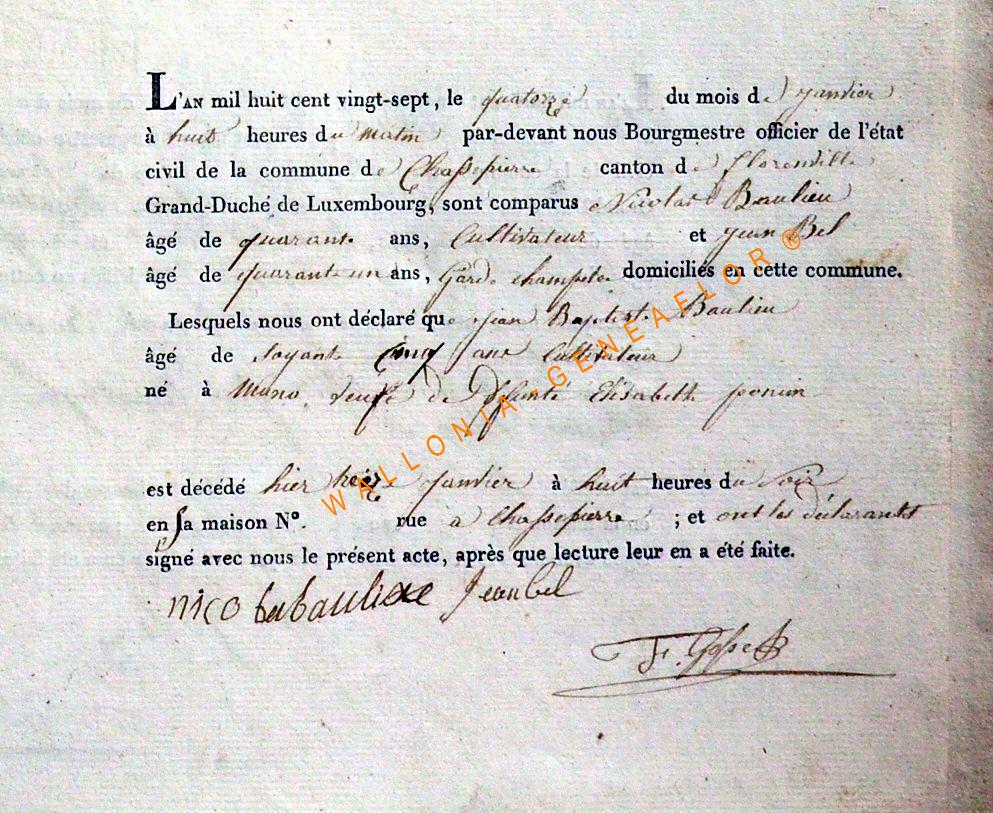 L'AN mil huit cent vingt-sept, le quatorze du mois de janvier
à huit heures du matin par-devant nous Bourgmestre officier de l'état
civil de la commune de Chassepierre canton de florenville
Grand-Duché de Luxembourg, sont comparus Nicolas Baulieu
âgé de quarante ans, Cultivateur et jean Bel
âgé de quarante un ans, Garde champete domiciliés en cette commune.
Lesquels nous ont déclaré que jean Baptiste Baulieu
âgé de soyante Cinq ans Cultivateur
né à Muno, veuf de Defunte Elisabeth ponsin
est décédé hier treize janvier à huit heures du soir
en sa maison N°. rue à Chassepierre ; et ont les déclarants
signé avec nous le présent acte, après que lecture leur en a été faite.
nico bauliae Jean bel
F. Gosse
WALLONIA-GENEAFLOR ®